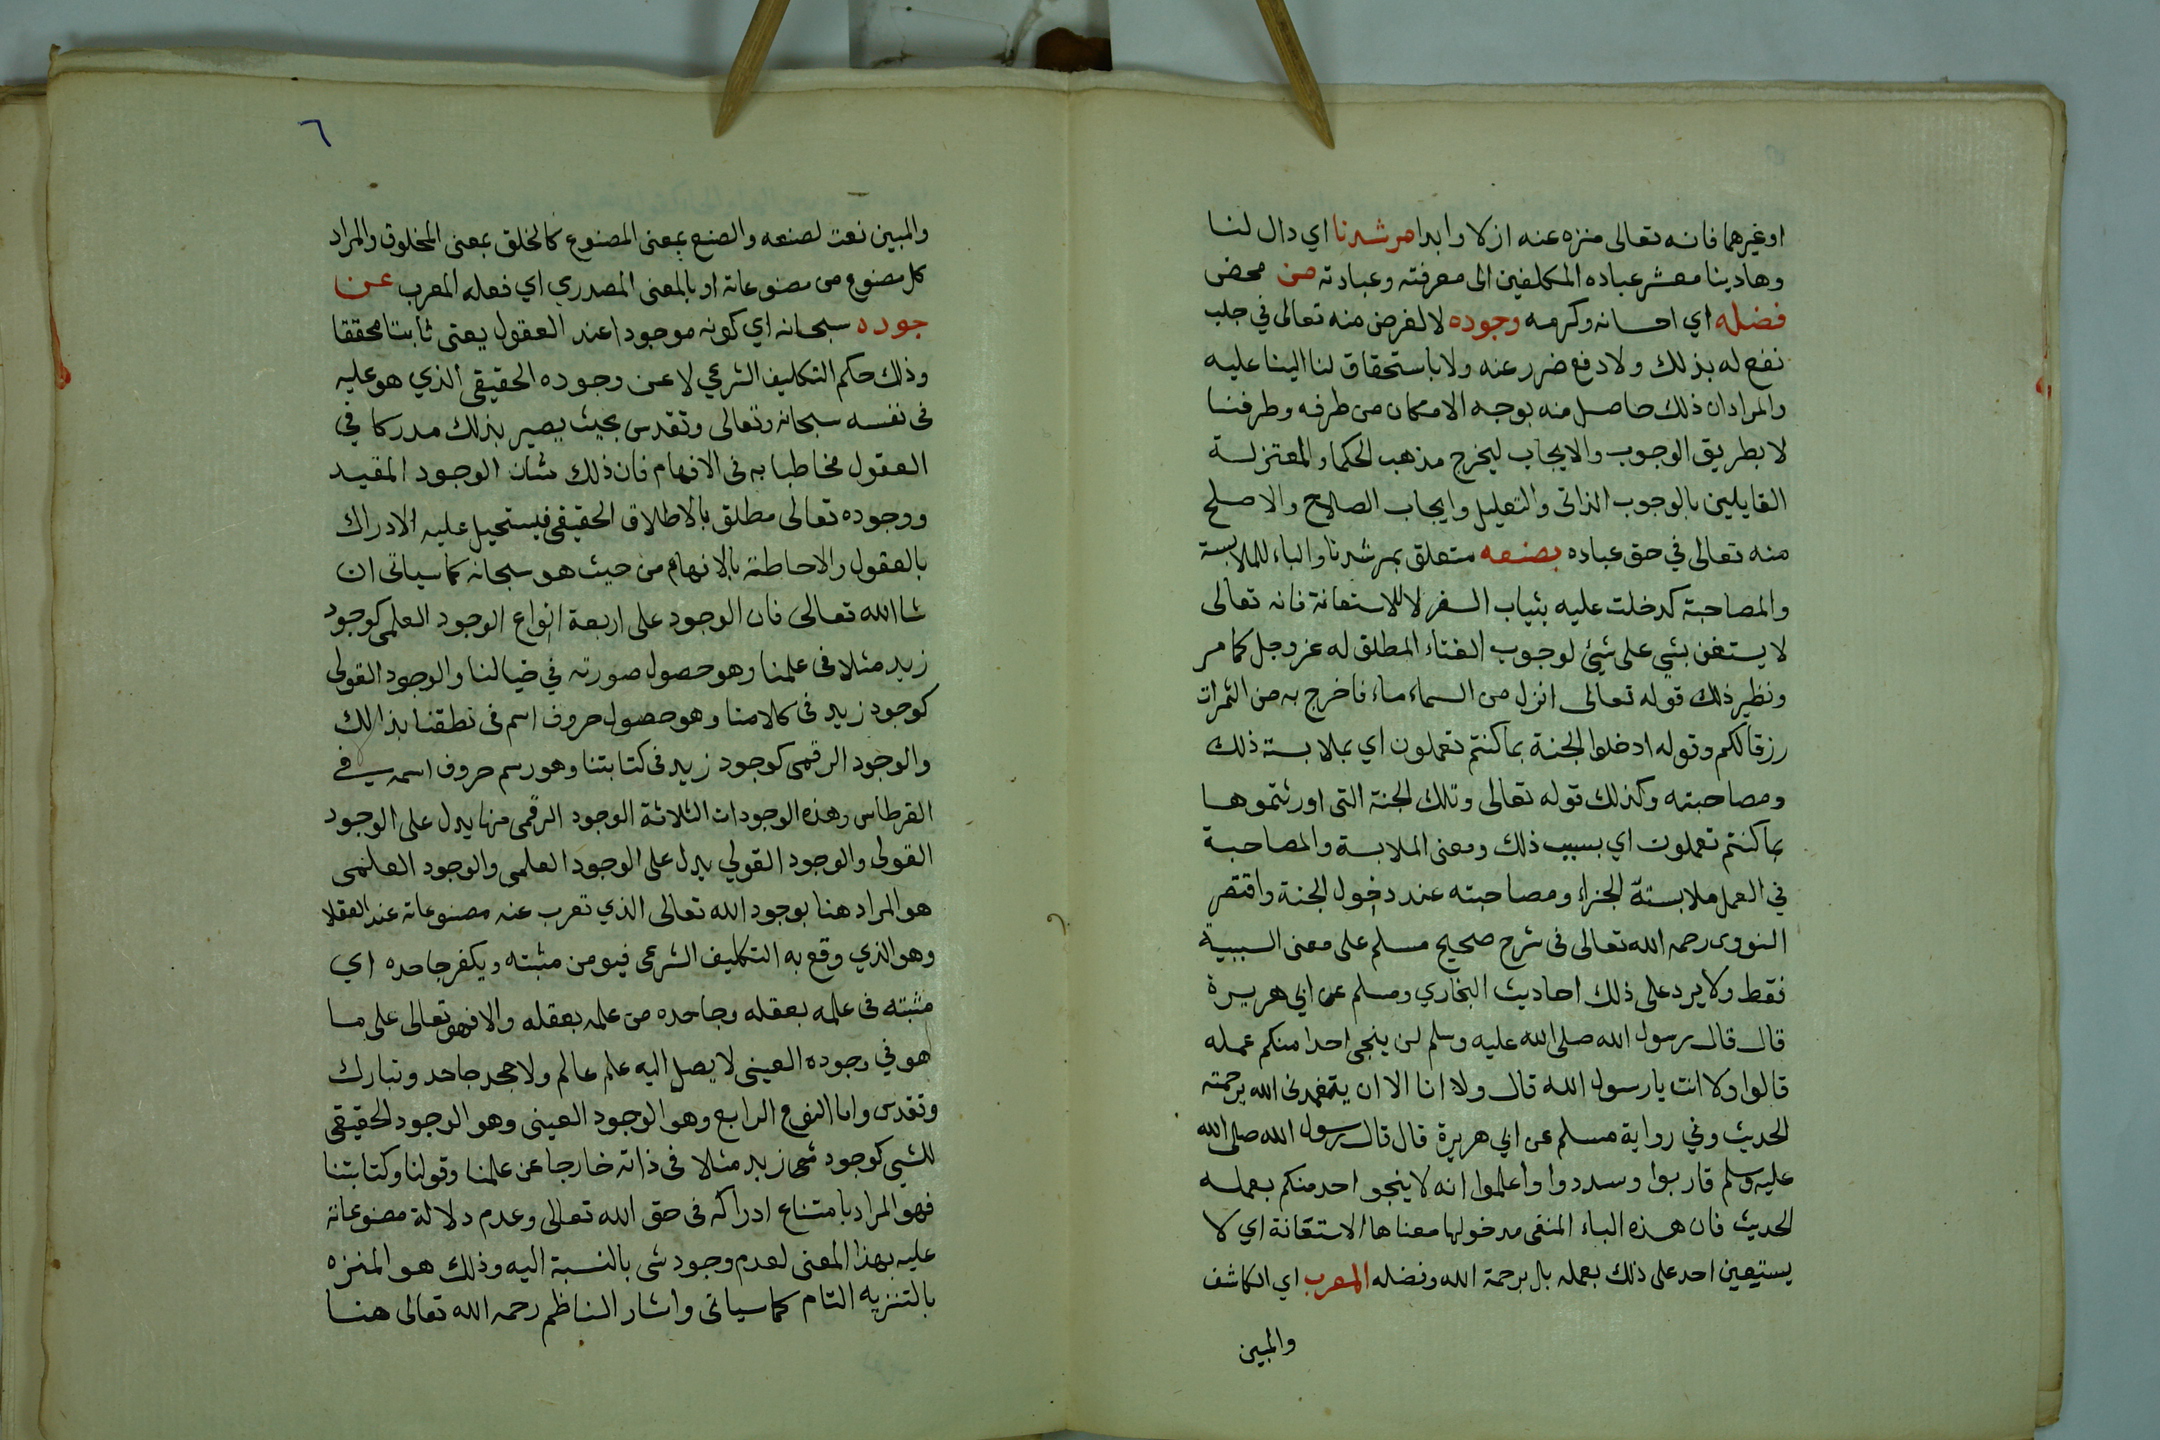 اوغيرهما فانه تعالى منزه عنه ازلا وابدا مرشدنا اي دال لنا
وهادينا معشر عباده المكلفين الى معرفته وعبادته من محض
فضله اي احسانه وكرمه وجوده لا لغرض منه تعالى في جلب
نفع له بذلك ولا دفع ضرر عنه ولا باستحقاق لنا الينا عليه
والمراد ان ذلك حاصل منه بوجه الامكان من طرفه وطرفنا
لا بطريق الوجوب والايجاب ليخرج مذهب الحكما والمعتزلة
القايلين بالوجوب الذاتى والتعليل وايجاب الصلاح والاصلح
منه تعالى في حق عباده بصنعه متعلق بمرشدنا والباء للملابسة
والمصاحبة كدخلت عليه بثياب السفر لا للاستعانة فانه تعالى
لا يستعن بشي على شيئ لوجوب الغناء المطلق له عز وجل كما مر
ونظير ذلك قوله تعالى انزل من السماء ماء فاخرج به من الثمرات
رزقا لكم وقوله ادخلوا الجنة بما كنتم تعملون اي بملابسة ذلك
ومصاحبته وكذلك قوله تعالى وتلك الجنة التى اورثتموها
بما كنتم تعملون اي بسبب ذلك ومعنى الملابسة والمصاحبة
في العمل ملابسته الجزاء ومصاحبته عند دخول الجنة واقتصر
النووى رحمه الله تعالى فى شرح صحيح مسلم على معنى السببية
فقط ولا يرد على ذلك احاديث البخاري ومسلم عن ابي هريرة
قال قال رسول الله صلى الله عليه وسلم لن ينجى احدا منكم عمله
قالوا ولا انت يا رسول الله قال ولا انا الا ان يتغمدنى الله برحمته
الحديث وفي رواية مسلم عن ابي هريرة قال قال رسول الله صلى الله
عليه وسلم قاربوا وسددوا واعلموا انه لا ينجو احد منكم بعمله
الحديث فان هذه الباء المنفى مدخولها معناها الاستعانة اي لا
يستعين احد على ذلك بعمله بل برحمة الله وفضله المعرب اي الكاشف
والمبين
٦
والمبين نعت لصنعه والصنع بمعنى المصنوع كالخلق بمعنى المخلوق والمراد
كل مصنوع من مصنوعاته او بالمعنى المصدري اي فعله المعرب عن
جوده سبحانه اي كونه موجودا عند العقول يعنى ثابتا محققا
وذلك حكم التكليف الشرعي لا عن وجوده الحقيقى الذي هو عليه
فى نفسه سبحانه وتعالى وتقدس بحيث يصير بذلك مدركا في
العقول مخاطبا به فى الافهام فان ذلك شان الوجود المقيد
ووجوده تعالى مطلق بالاطلاق الحقيقى فيستحيل عليه الادراك
بالعقول والاحاطة بالافهام من حيث هو سبحانه كما سياتى ان
شا الله تعالى فان الوجود على اربعة انواع الوجود العلمى كوجود
زيد مثلا فى علمنا وهو حصول صورته في خيالنا والوجود القولى
كوجود زيد فى كلامنا وهو حصول حروف اسم فى نطقنا بذالك
والوجود الرقمى كوجود زيد فى كتابتنا وهو رسم حروف اسمه في
القرطاس وهذه الوجودات الثلاثة الوجود الرقمى منها يدل على الوجود
القولى والوجود القولي يدل على الوجود العلمى والوجود العلمى
هو المراد هنا بوجود الله تعالى الذي تعرب عنه مصنوعاته عند العقلا
وهو الذي وقع به التكليف الشرعى فيومن مثبته ويكفر جاحده اي
مثبته فى علمه بعقله وجاحده من علمه بعقله والا فهو تعالى على ما
هو في وجوده العينى لا يصل اليه علم عالم ولا جحد جاحد وتبارك
وتقدس واما النوع الرابع وهو الوجود العينى وهو الوجود الحقيقى
للشيى كوجود زيد مثلا فى ذاته خارجا عن علمنا وقولنا وكتابتنا
فهو المراد بامتناع ادراكه فى حق الله تعالى وعدم دلالة مصنوعاته
عليه بهذا المعنى لعدم وجود شى بالنسبة اليه وذلك هو المنزه
بالتنزيه التام كما سياتى واشار الناظم رحمه الله تعالى هنا